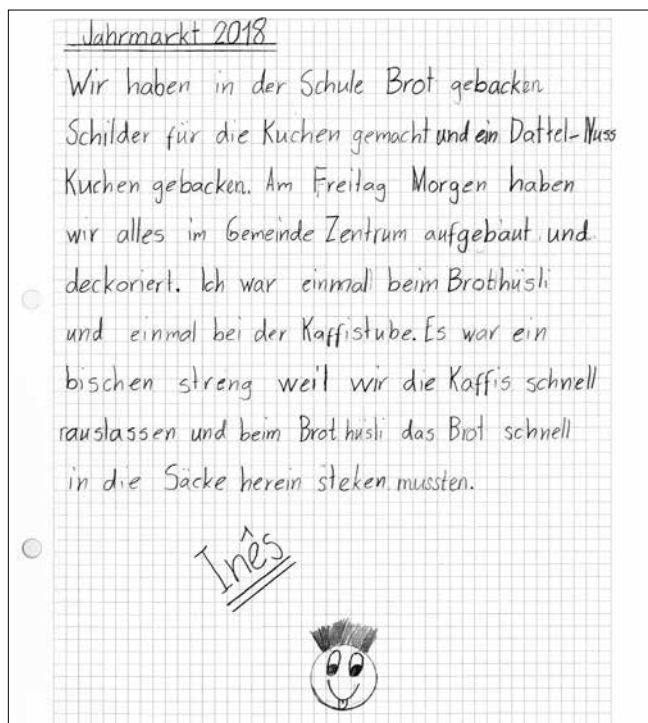 Jahrmarkt 2018
Wir haben in der Schule Brot gebacken
Schilder für die Kuchen gemacht und ein Dattel-Nuss
Kuchen gebacken. Am Freitag Morgen haben
wir alles im Gemeinde Zentrum aufgebaut und
deckoriert. Ich war einmal beim Brothüsli
und einmal bei der Kaffistube. Es war ein
bischen streng weil wir die Kaffis schnell
rauslassen und beim Brothüsli das Brot schnell
in die Säcke herein steken mussten.
Inês